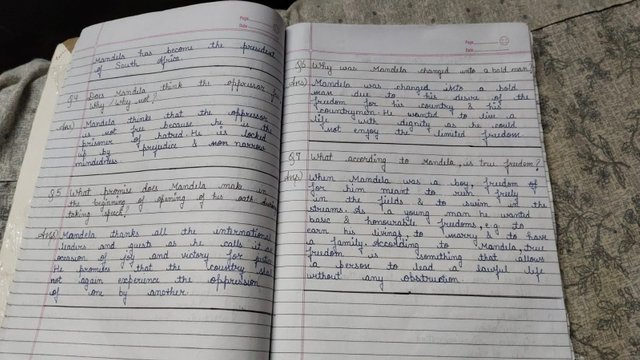 Mandela has become the president
of South Africa.
Q4 Does Mandela think the oppressor
Why / Why not?
Ans) Mandela thinks that the oppressor
is not free because he is the
prisoner of hatred. He is locked
up by prejudice & non narrow
mindedness
Q5 What promise does Mandela make in
the beginning of opening of his oath during
taking speech?
Ans) Mandela thanks all the international
leaders and guests as he calls it as
occasion of joy and victory for justice
He promises that the country shall
not again experience the oppression
of one by another.
Page
Date
Q6 Why was Mandela changed into a bold man?
Ans) Mandela was changed into a bold
man due to his desire of the
freedom for his country & his
countrymen. He wanted to live a
life with dignity as he could
not enjoy the limited freedom
Q7 What according to Mandela, is true freedom?
Ans) When Mandela was a boy, freedom of
for him meant to run freely
in the fields & to swim in the
streams. As a young man he wanted
basic & honourable freedoms, e.g to
earn his livings, to marry & to have
a family. According to Mandela, true
freedom is something that allows
a person to lead a lawful life
without any obstruction.